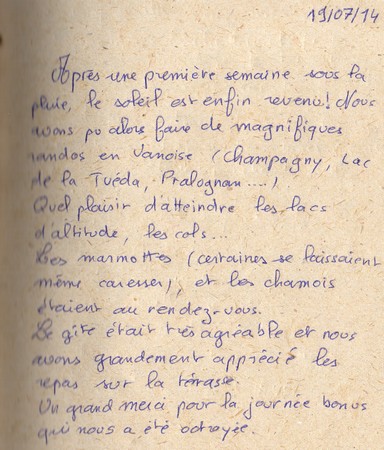 19/07/14
Après une première semaine sous la
pluie, le soleil est enfin revenu! Nous
avons pu alors faire de magnifiques
randos en Vanoise (Champagny, Lac
de la Tuéda, Pralognan....)
Quel plaisir d'atteindre les lacs
d'altitude, les cols...
Les marmottes (certaines se laissaient
même caresser), et les chamois
étaient au rendez-vous.
Le gîte était très agréable et nous
avons grandement apprécié les
repas sur la térasse.
Un grand merci pour la journée bonus
qui nous a été octroyée.